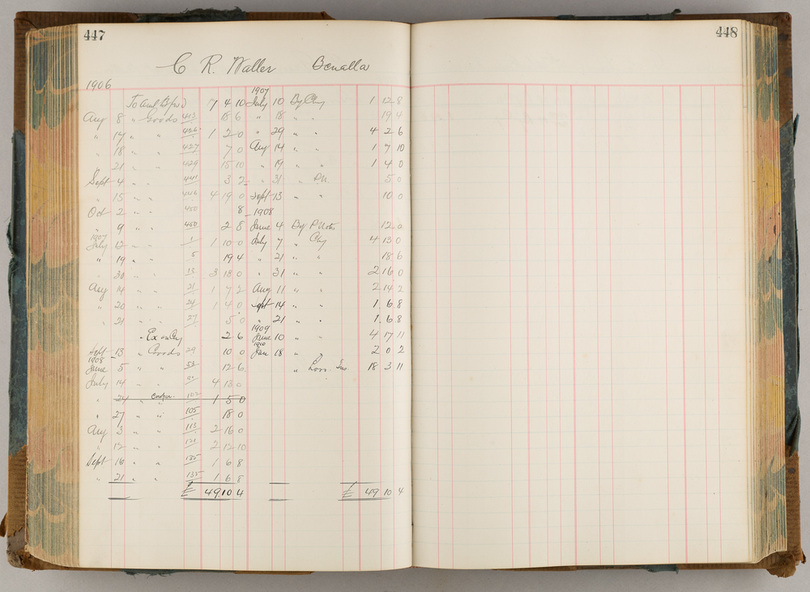 447
448
C R Waller Benalla
1906
1907
To Amt Bfwd 7 4 10 July 10 By Chq 1 12 8
Aug 8 " Goods 413 18 6 " 18 " " 19 4
" 14 " " 1 2 0 " 29 " " 4 2 6
" 18 " " 427 7 0 Aug 14 " " 1 7 10
" 21 " " 429 15 10 " 19 " " 1 4 0
Sept 4 " " 3 2 " 31 " 5 0
" 15 " " 4 19 0 Sept 13 " " 10 0
Oct 2 " " 450 8 1908
" 9 " " 450 2 8 June 4 By 12 6
1907
July 12 " " 1 1 10 0 July 7 " Chq 4 13 0
" 19 " " 5 19 4 " 21 " " 18 6
" 20 " " 3 18 0 " 31 " " 2 16 0
Aug 4 " " 21 1 7 2 Aug 11 " " 2 14 2
" 20 " " 24 1 4 0 Sept 14 " " 1 6 8
" 21 " " 27 5 0 " 21 " " 1 6 8
1909
" Ex on Chq 2 6 June 10 " 4 17 11
1910
Sept 13 " Goods 29 10 0 Jan 18 " 2 0 2
1908
June 5 " " 12 6 " 18 3 11
July 14 " " 4 13 0
" 24 " 1 5 0
" 27 " " 105 18 0
Aug 3 " " 2 16 0
" 12 " " 2 12 10
Sept 16 " " 135 1 6 8
" 21 " " 1 6 8
£ 49 10 4 £ 49 10 4